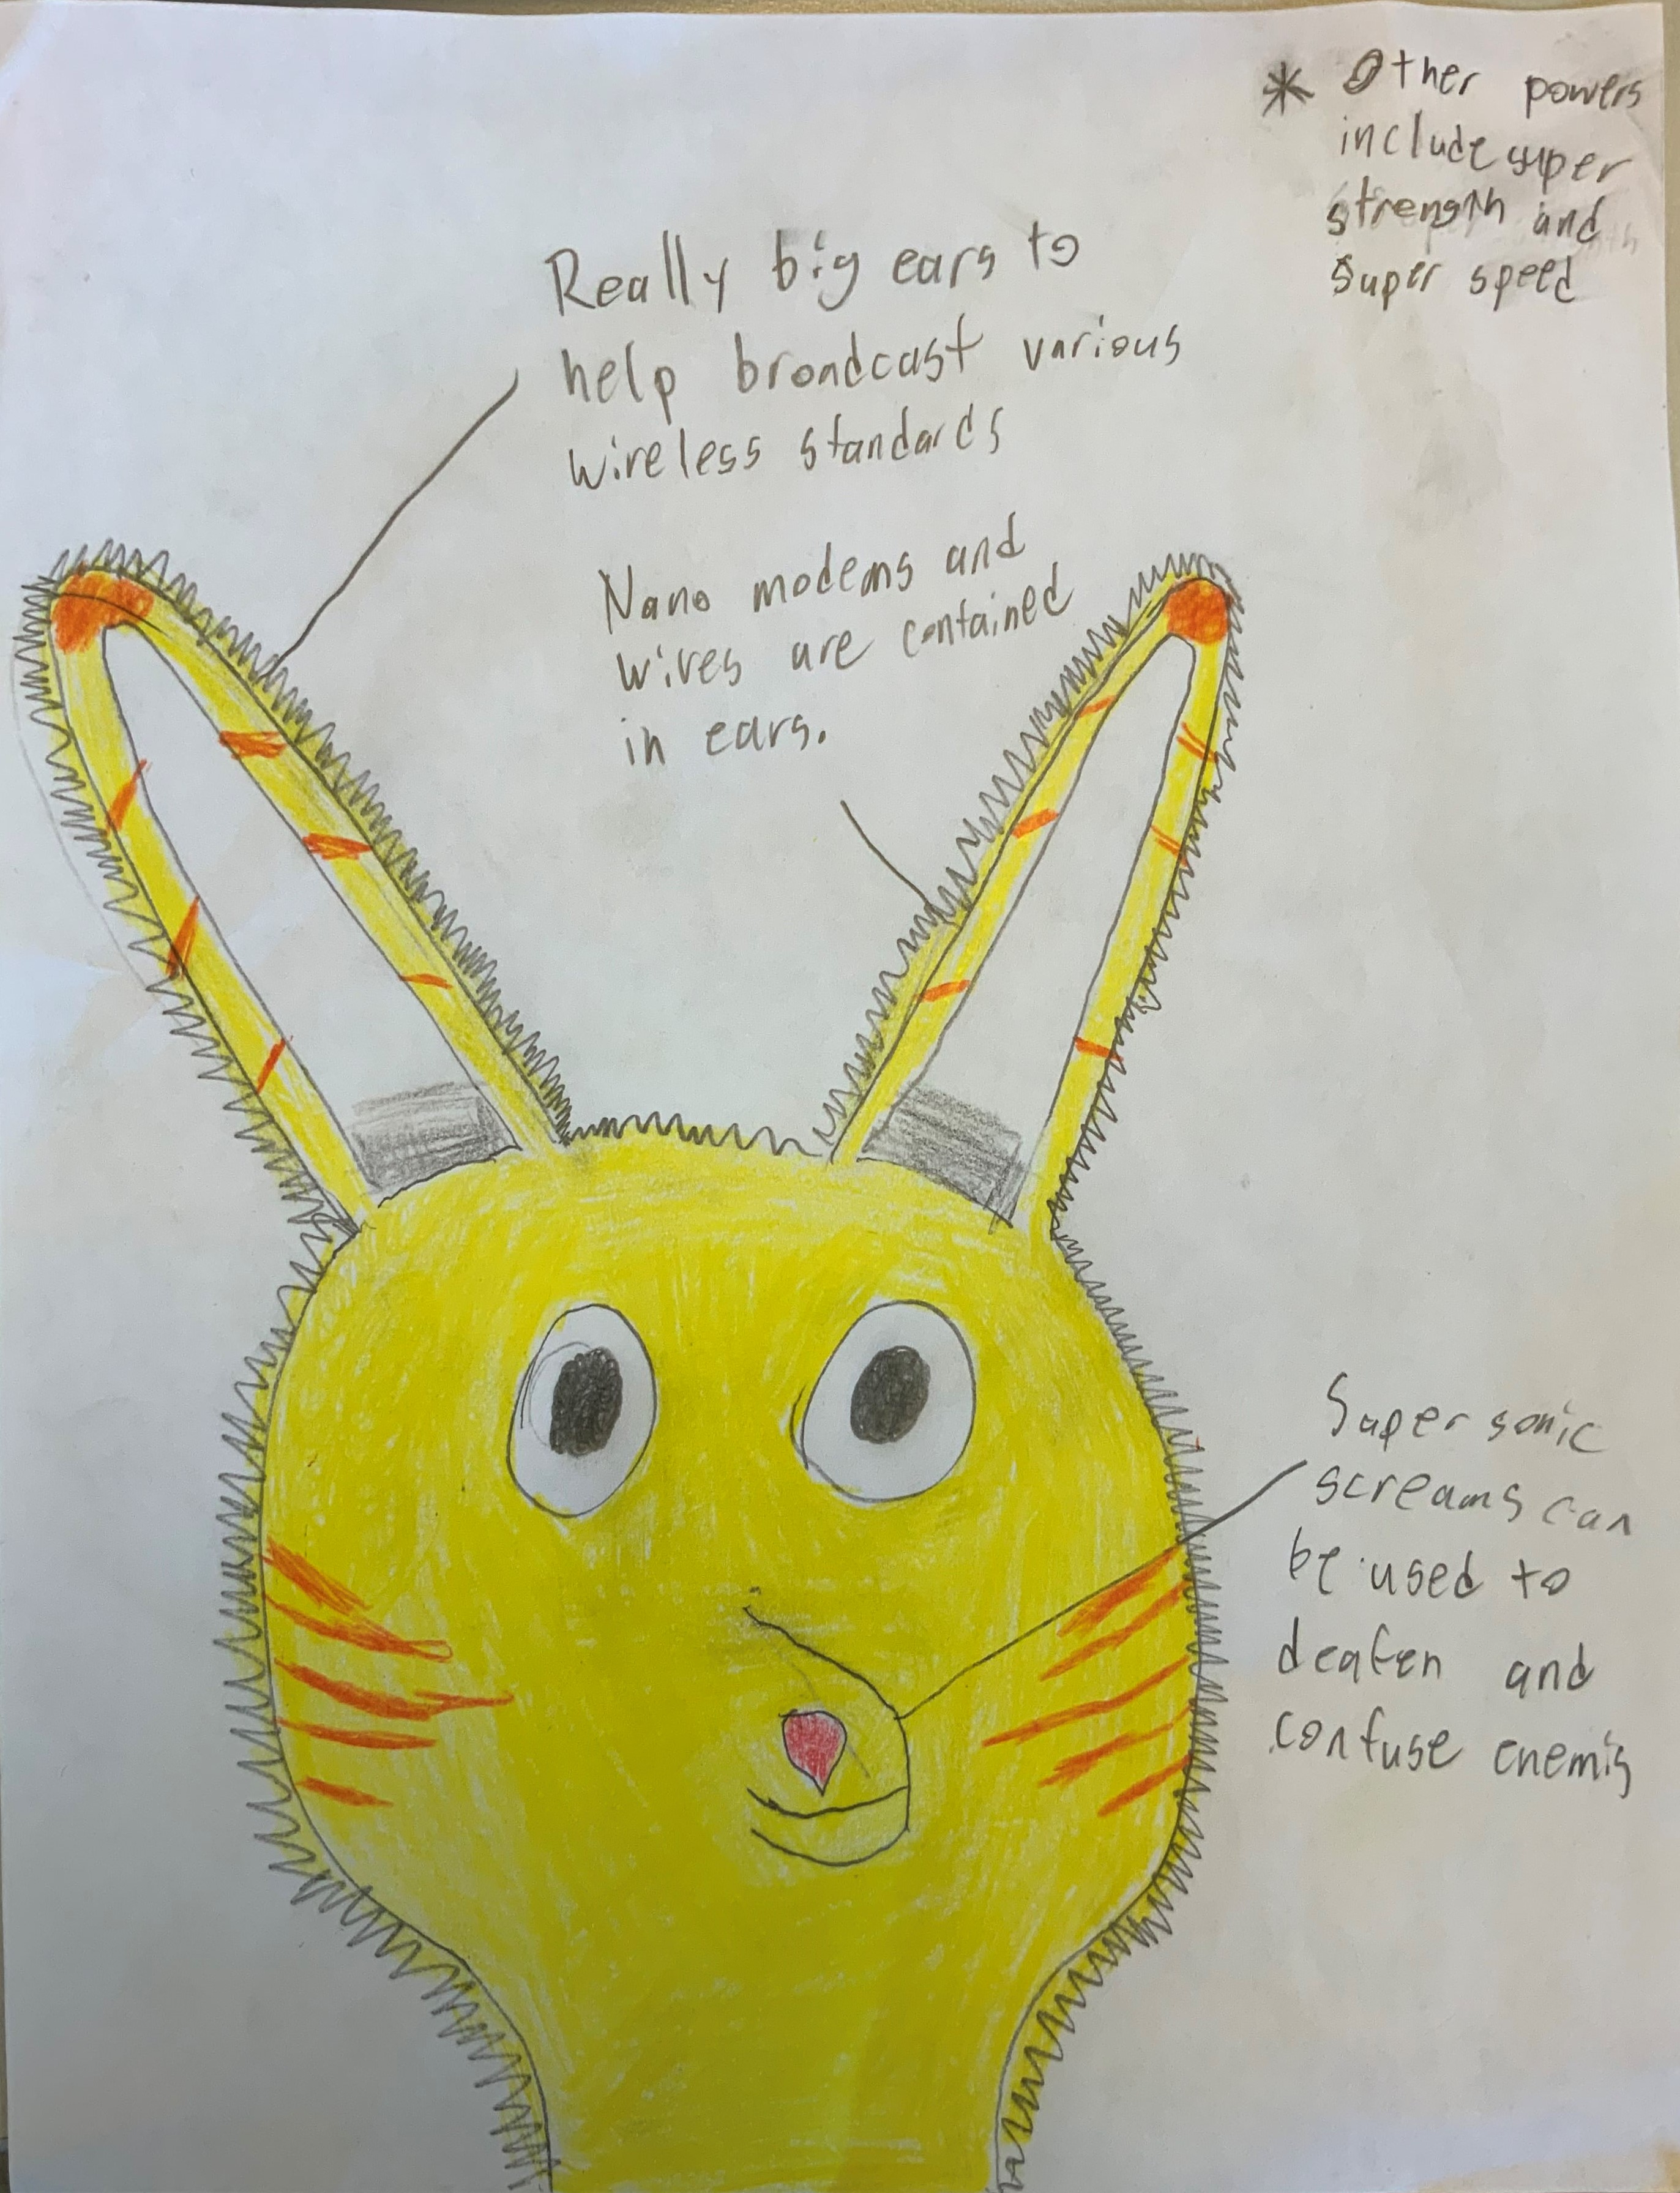 * Other powers
include super
strength and
super speed
Really big ears to
help broadcast various
wireless standards
Nano modems and
wires are contained
in ears.
Super sonic
screams can
be used to
deafen and
confuse enemis